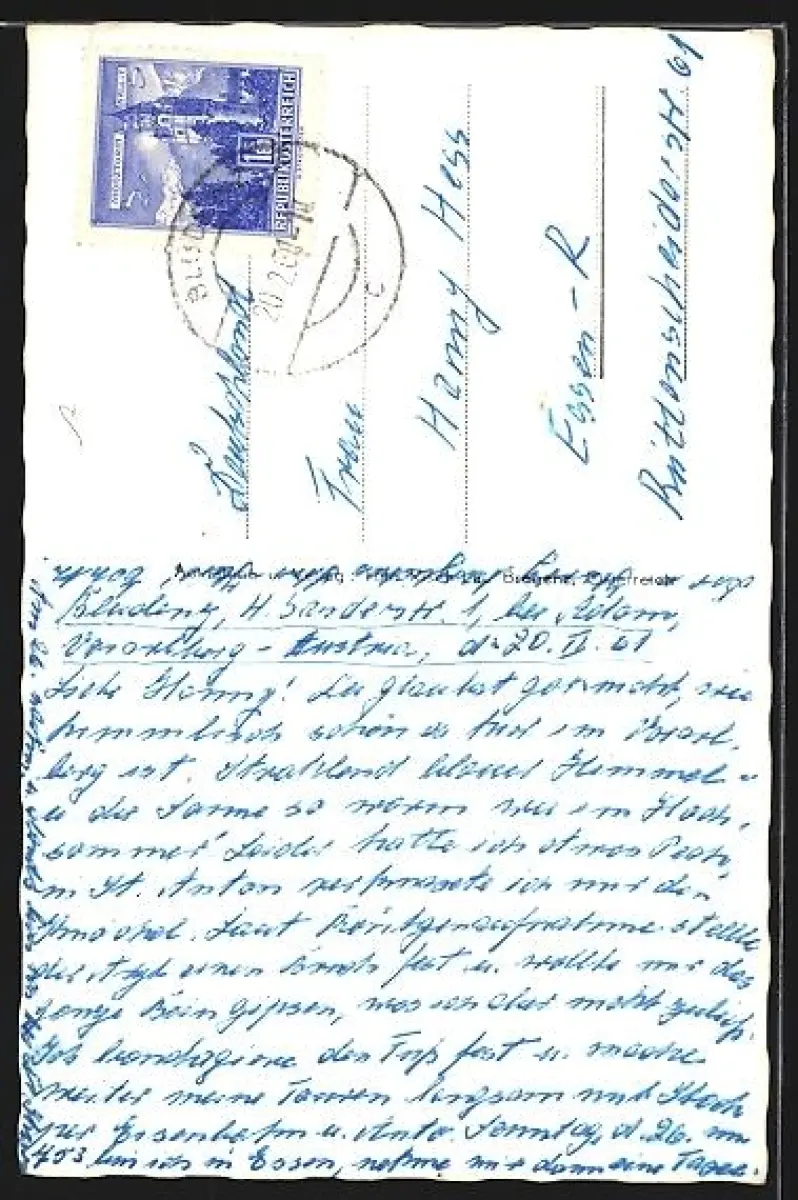 REPUBLIK ÖSTERREICH
20.2.61
c
Deutschland
Frau
Hanny Hess
Essen - R
Rüttenscheiderstr. 61
Bludenz, H. Sanderstr. 1, bei Adam,
Vorarlberg - Austria, d. 20. II. 61
Liebe Hanny! Du glaubst gar nicht, wie
himmlisch schön es hier im Vorarl-
berg ist. Strahlend blauer Himmel
u die Sonne so warm wie im Hoch-
sommer! Leider hatte ich etwas Pech,
in St. Anton verknaxte ich mir den
Knöchel. Laut Röntgenaufnahme stellte
der Arzt einen Bruch fest u. wollte mir das
ganze Bein gipsen, was ich aber nicht zuließ.
Ich bandagiere den Fuß fest u. mache
weiter meine Touren langsam mit Stock
per Eisenbahn u. Auto. Sonntag, d. 26. 
bin ich in Essen, nehme mir dann eine Taxe.